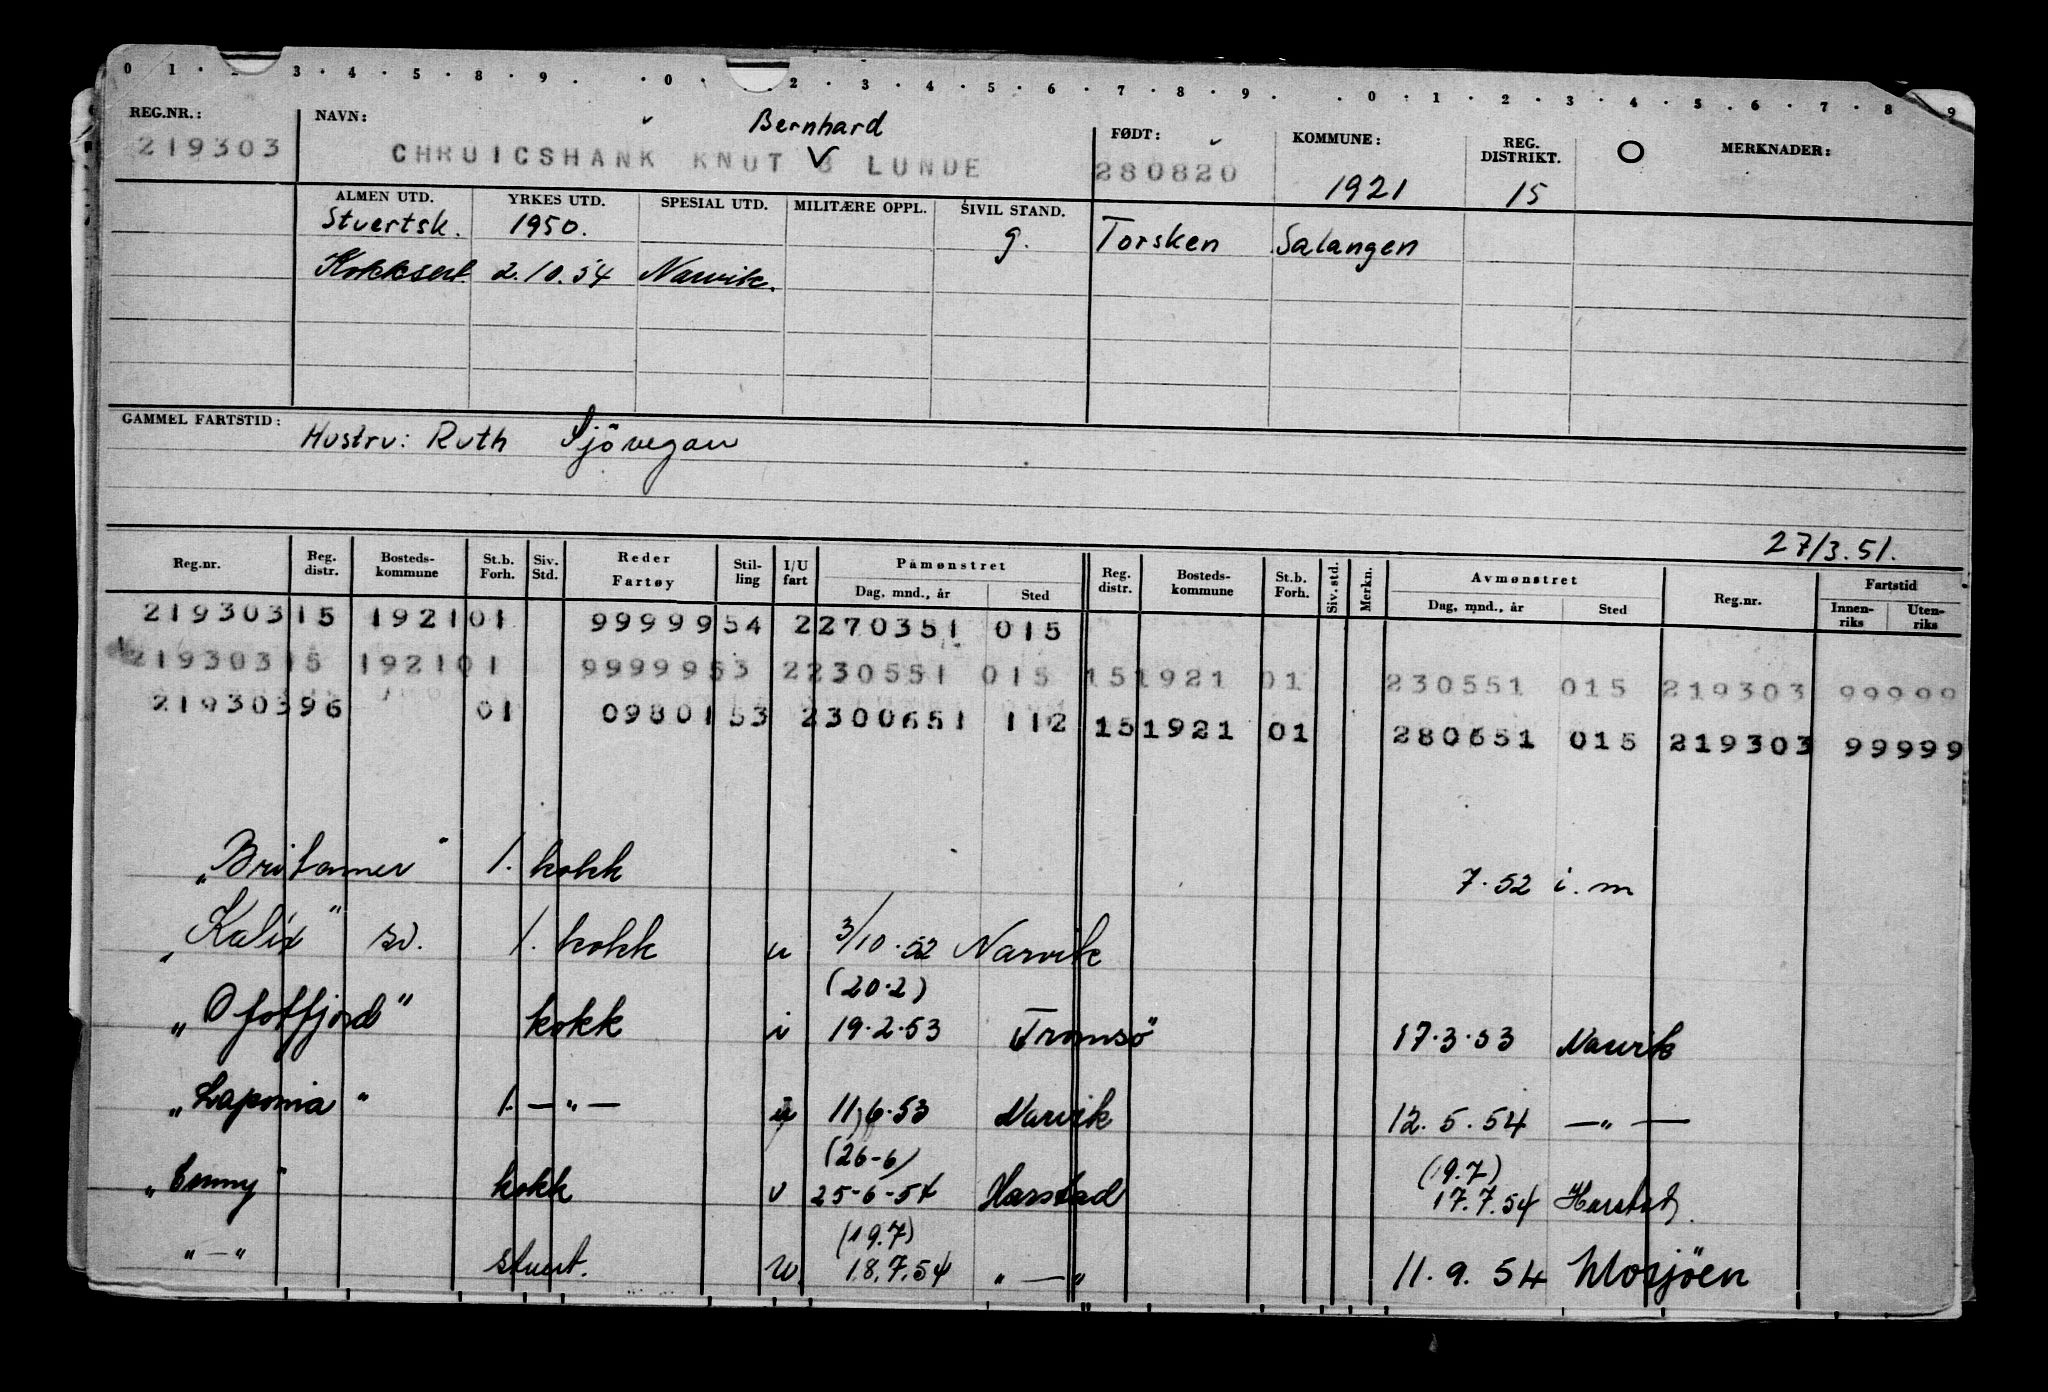 0 1 · 2 · 3 · 4 · 5 · 8 · 9 · · 0 · · 2 · 3 · 4 · 5 · 6 · 7 · 8 · 9 · · 0 · 1 · 2 · 3 · 4 · 5 · 6 · 7 · 8 · 9
REG.NR.: NAVN: Bernhard FØDT: KOMMUNE: REG. DISTRIKT. O MERKNADER:
219303 CHRUICSHANK KNUT B LUNDE 280820 1921 15
ALMEN UTD. YRKES UTD. SPESIAL UTD. MILITÆRE OPPL. SIVIL STAND.
Stuertsk. 1950. g. Torsken Salangen
Kokksert. 2.10.54 Narvik.
GAMMEL FARTSTID: Hustru: Ruth Sjövegan
27/3.51.
Reg.nr. Reg. distr. Bosteds-kommune St.b. Forh. Siv. Std. Reder Fartøy Stil-ling I/U fart Påmønstret Dag, mnd., år Sted Reg. distr. Bosteds-kommune St.b. Forh. Siv. std. Merkn. Avmønstret Dag, mnd., år Sted Reg.nr. Fartstid Innen-riks Uten-riks
219303 15 1921 01 99999 54 2 270351 015
219303 15 1921 01 99999 53 2 230551 015 15 1921 01 230551 015 219303 99999
219303 96 01 09801 53 2 300651 112 15 1921 01 280651 015 219303 99999
"Britamer" 1. kokk 7.52 i. m
"Kalix" sv. 1. kokk u 3/10.52 Narvik
(20.2)
"Ofotfjord" kokk i 19.2.53 Tromsö 17.3.53 Narvik
"Laponia" 1. — " — u 11.6.53 Narvik 12.5.54 — " —
(26-6) (19.7)
"Conny" kokk u 25-6-54 Harstad 17.7.54 Harstad.
(19.7)
" — " stuert. u. 18.7.54 " — " 11.9.54 Mosjöen